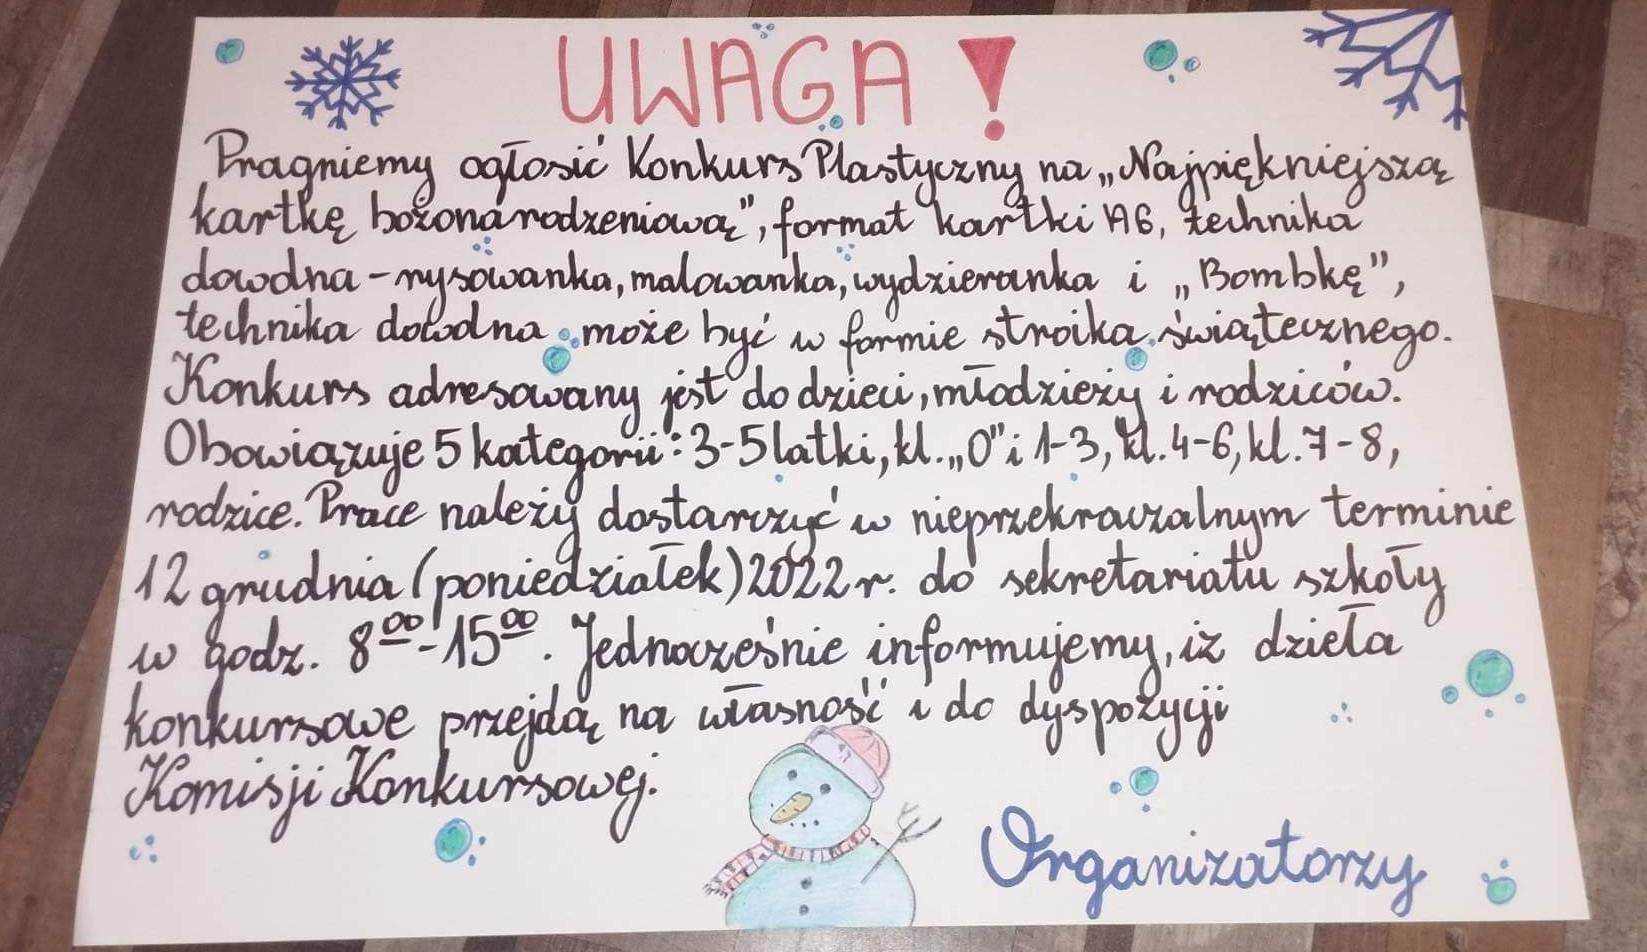 UWAGA!
Pragniemy ogłosić Konkurs Plastyczny na „Najpiękniejszą
kartkę bożonarodzeniową”, format kartki A6, technika
dowolna - rysowanka, malowanka, wydzieranka i „Bombkę”,
technika dowolna może być w formie stroika świątecznego.
Konkurs adresowany jest do dzieci, młodzieży i rodziców.
Obowiązuje 5 kategorii: 3-5 latki, kl. „0” i 1-3, kl. 4-6, kl. 7-8,
rodzice. Prace należy dostarczyć w nieprzekraczalnym terminie
12 grudnia (poniedziałek) 2022 r. do sekretariatu szkoły
w godz. 8⁰⁰-15⁰⁰. Jednocześnie informujemy, iż dzieła
konkursowe przejdą na własność i do dyspozycji
Komisji Konkursowej.
Organizatorzy